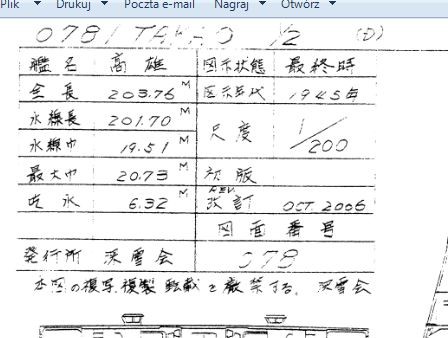 Plik Drukuj Poczta e-mail Nagraj Otwórz
0781 TAKAO 1/2 (D)
艦名 高雄 図示状態 最終時
全長 203.76 M 図示年代 1945年
水線長 201.70 M 尺度 1/200
水線巾 19.51 M
最大巾 20.73 M 初版
吃水 6.32 M 改訂 REV. OCT. 2006
図面番号
発行所 深雪会 078
本図の複写複製転載を厳禁する。 深雪会